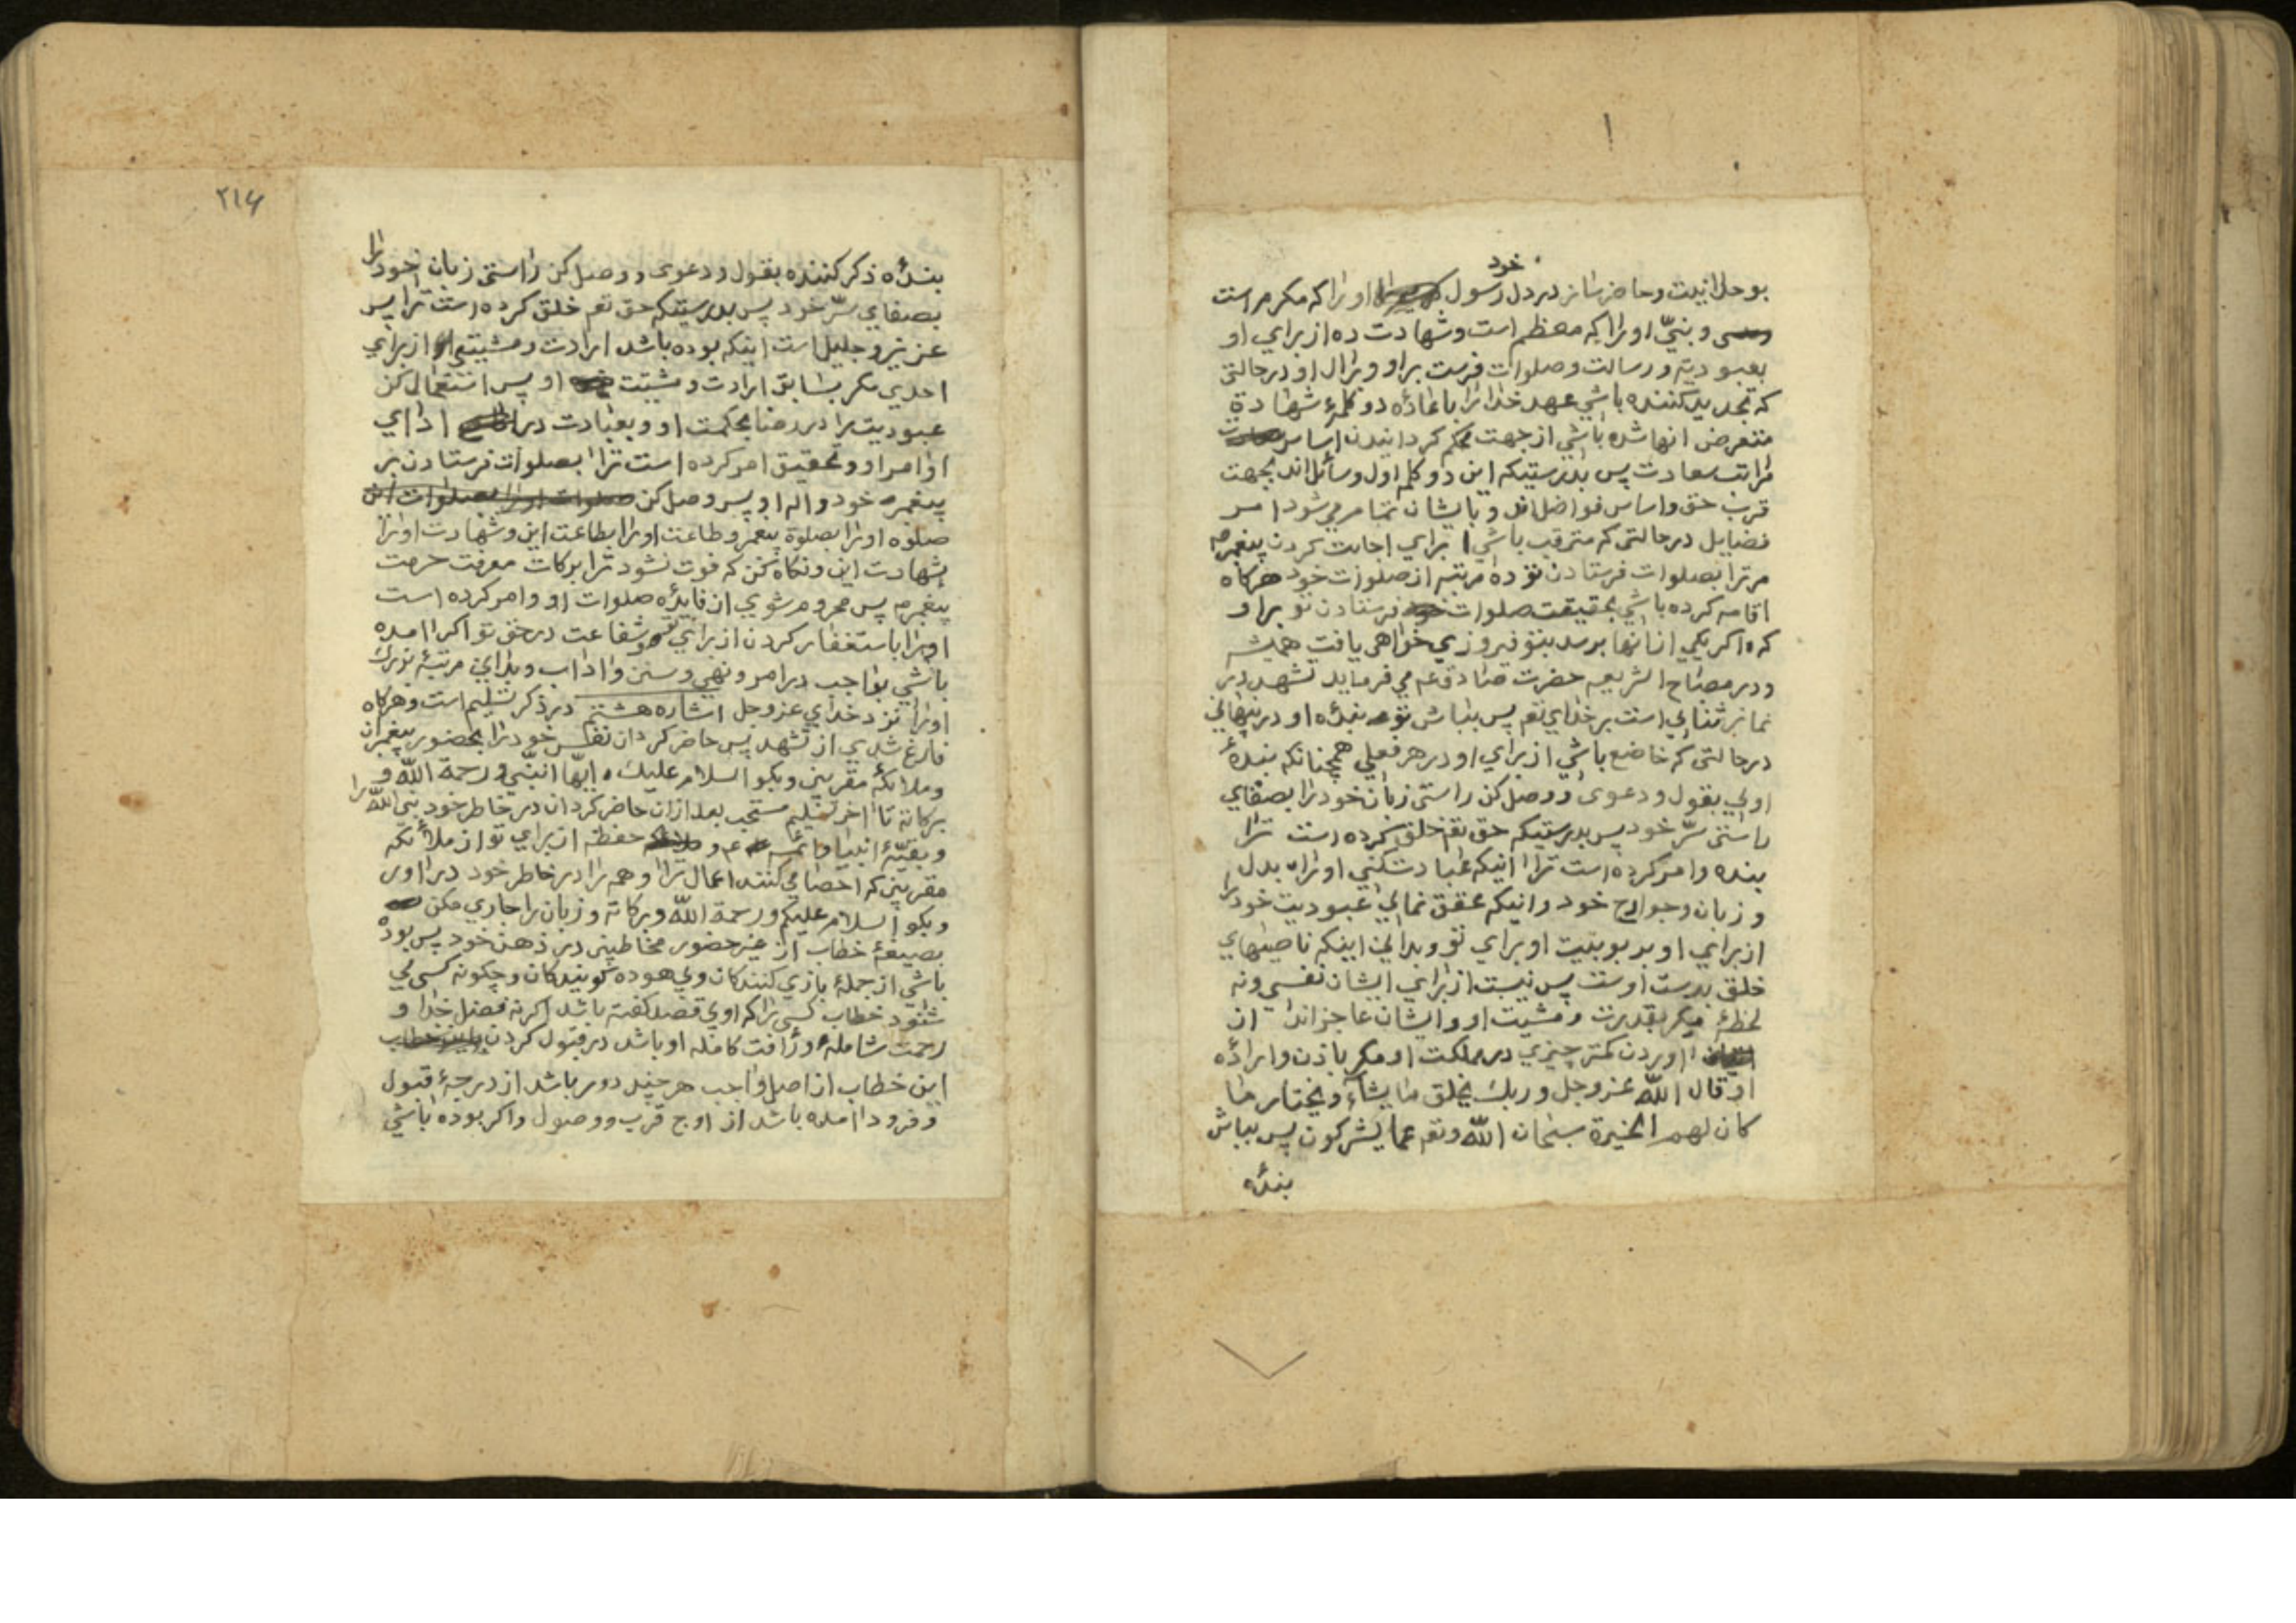 خود
بوحدانیت و حاضر ساز در دل رسول اورا که مکرم است
و نبیّ اورا که معظم است و شهادت ده از برای او
بعبودیته و رسالت و صلوات فرست بر او و بر ال او در حالتی
که تجدید کننده باشی عهد خدا را باعادهٔ دو کلمهٔ شهادة
متعرض انها شده باشی از جهت محکم کردانیدن اساس
مراتب سعادت پس بدرستیکه این دو کلم اول وسائل اند بجهت
قرب حق و اساس فواضل اند و بایشان تمام می شود امر
فضایل در حالتی که مترقب باشی برای اجابت کردن پیغمبرم
مر ترا بصلوات فرستادن تو ده مرتبه از صلوات خود هرکاه
اقامه کرده باشی بحقیقت صلوات فرستادن تو بر او
که اکر یکی از انها برسد بتو فیروزی خواهی یافت همیشه
و در مصباح الشریعه حضرت صادق عم می فرماید تشهد در
نماز ثنائی است بر خدای تعم پس بباش تو بندهٔ او در پنهانی
در حالتی که خاضع باشی از برای او در هر فعلی همچنانکه بندهٔ
اویی بقول و دعوی و وصل کن راستی زبان خود را بصفای
راستی سرّ خود پس بدرستیکه حق تعم خلق کرده است ترا
بنده و امر کرده است ترا اینکه عبادت کنی اورا بدل
و زبان و جوارح خود و اینکه محقق نمائی عبودیت خود را
از برای او بربوبیت او برای تو و بدانی اینکه ناصیهای
خلق بدست اوست پس نیست از برای ایشان نفسی و نه
لحظهٔ میکر بقدرت و مشیت او و ایشان عاجزاند از
اوردن کمتر چیزی در مملکت او مکر باذن و ارادهٔ
او قال اللّه عز و جل و ربك یخلق ما یشآء و یختار ما
کان لهم الخیرة سبحان اللّه و تعم عما یشرکون پس بباش
بندهٔ
۲۱۶
بندهٔ ذکر کننده بقول و دعوی و وصل کن راستی زبان خود را
بصفای سرّ خود پس بدرستیکه حق تعم خلق کرده است ترا پس
عزیز و جلیل است اینکه بوده باشد ارادت و مشیتی از برای
احدی مکر بسابق ارادت و مشیت او پس استعمال کن
عبودیت را در رضا بحکمت او و بعبادت در ادای
اوامر او و تحقیق امر کرده است ترا بصلوات فرستادن بر
پیغمبر خود و اله او پس وصل کن
صلوه اورا بصلوة پیغمبر و طاعت اورا بطاعت این و شهادت اورا
بشهادت این و نکاه کن که فوت نشود ترا برکات معرفت حرمت
پیغمبرم پس محروم شوی از فایدهٔ صلوات او و امر کرده است
اورا باستغفار کردن از برای تو و شفاعت در حق تو اکر امده
باشی بواجب در امر و نهی و سنن و اداب و بدانی مرتبهٔ بزرك
اورا نزد خدای عز و جل اشاره هشتم در ذکر تسلیم است و هرکاه
فارغ شدی از تشهد پس حاضر کردان نفس خود را بحضور پیغمبران
و ملائکهٔ مقربین و بکو السلام علیك ایّها النّبی و رحمة اللّه و
برکاته تا اخر تسلیم مستحب بعد از ان حاضر کردان در خاطر خود نبی اللّه را
و بقیّهٔ انبیا و ائمه عم و حفظه از برای تو از ملائکه
مقربین که احصا می کنند اعمال ترا و همه را در خاطر خود در اور
و بکو السلام علیکم و رحمة اللّه و برکاته و زبان را جاری مکن
بصیغهٔ خطاب از غیر حضور مخاطبین در ذهن خود پس بوده
باشی از جملهٔ بازی کنندکان و بی هوده کویندکان و چکونه کسی می
شنود خطاب کسی را که او بی قصد کفته باشد اکر نه فضل خدا و
رحمت شامله و رأفت کامله او باشد در قبول کردن
این خطاب از اصل واجب هر چند دور باشد از درجهٔ قبول
و فرود امده باشد از اوج قرب و وصول و اکر بوده باشی